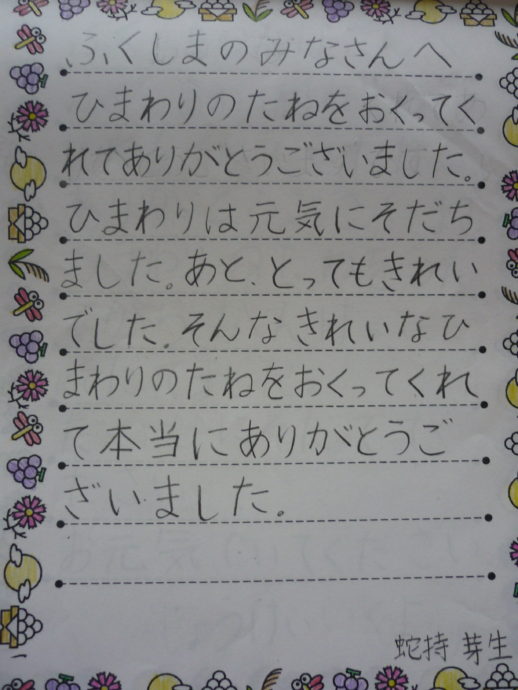 ふくしまのみなさんへ
ひまわりのたねをおくってく
れてありがとうございました。
ひまわりは元気にそだち
ました。あと、とってもきれい
でした。そんなきれいなひ
まわりのたねをおくってくれ
て本当にありがとうご
ざいました。
蛇持 芽生